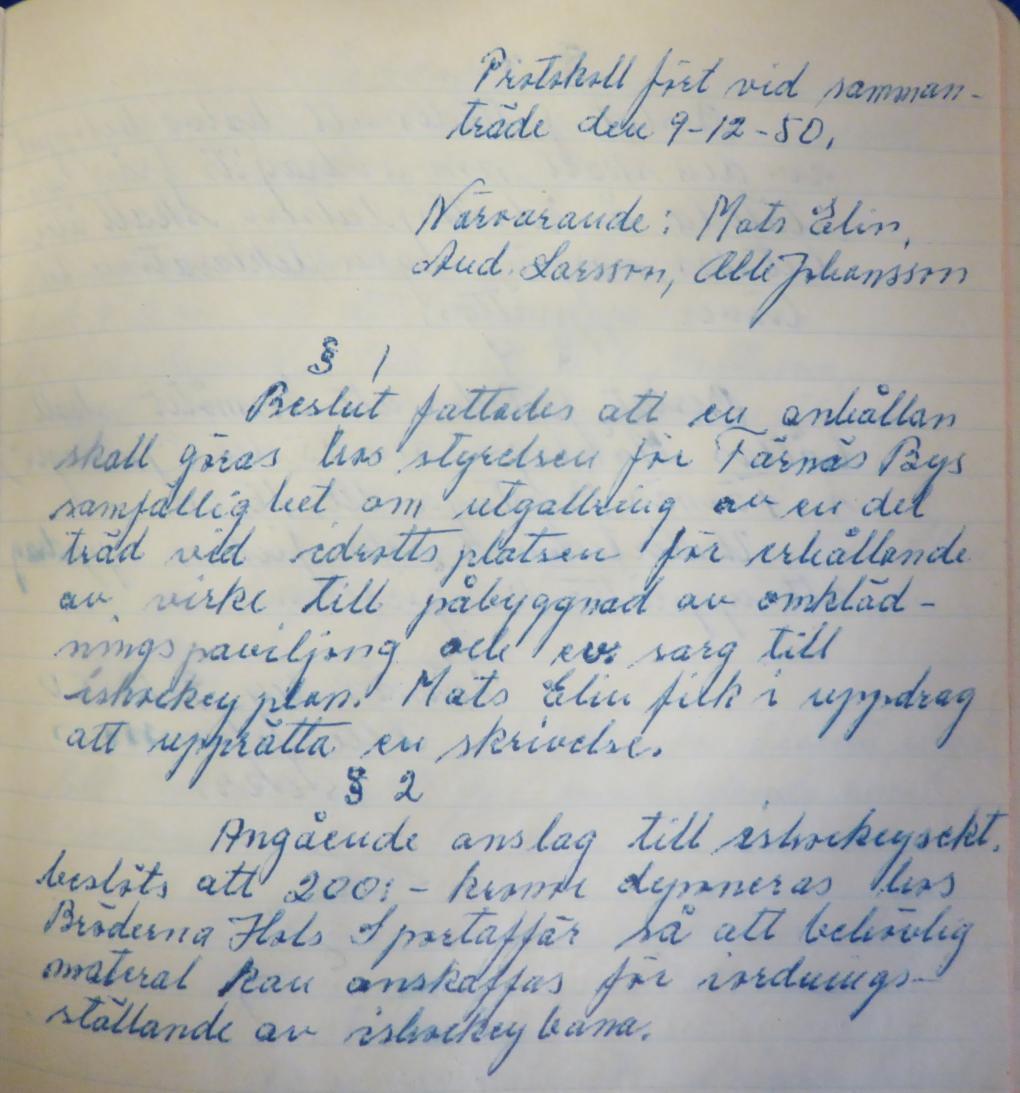 Protokoll fört vid samman-
träde den 9-12-50.
Närvarande: Mats Elin,
And. Larsson, Olle Johansson
§ 1
Beslut fattades att en anhållan
skall göras hos styrelsen för Färnäs Bys
samfällighet om utgallring av en del
träd vid idrottsplatsen för erhållande
av virke till påbyggnad av omkläd-
ningspaviljong och ev. sarg till
ishockeyplan. Mats Elin fick i uppdrag
att upprätta en skrivelse.
§ 2
Angående anslag till ishockeysekt.
beslöts att 200:- kronor deponeras hos
Bröderna Hols Sportaffär så att behövlig
materal kan anskaffas för iordnings-
ställande av ishockeybana.